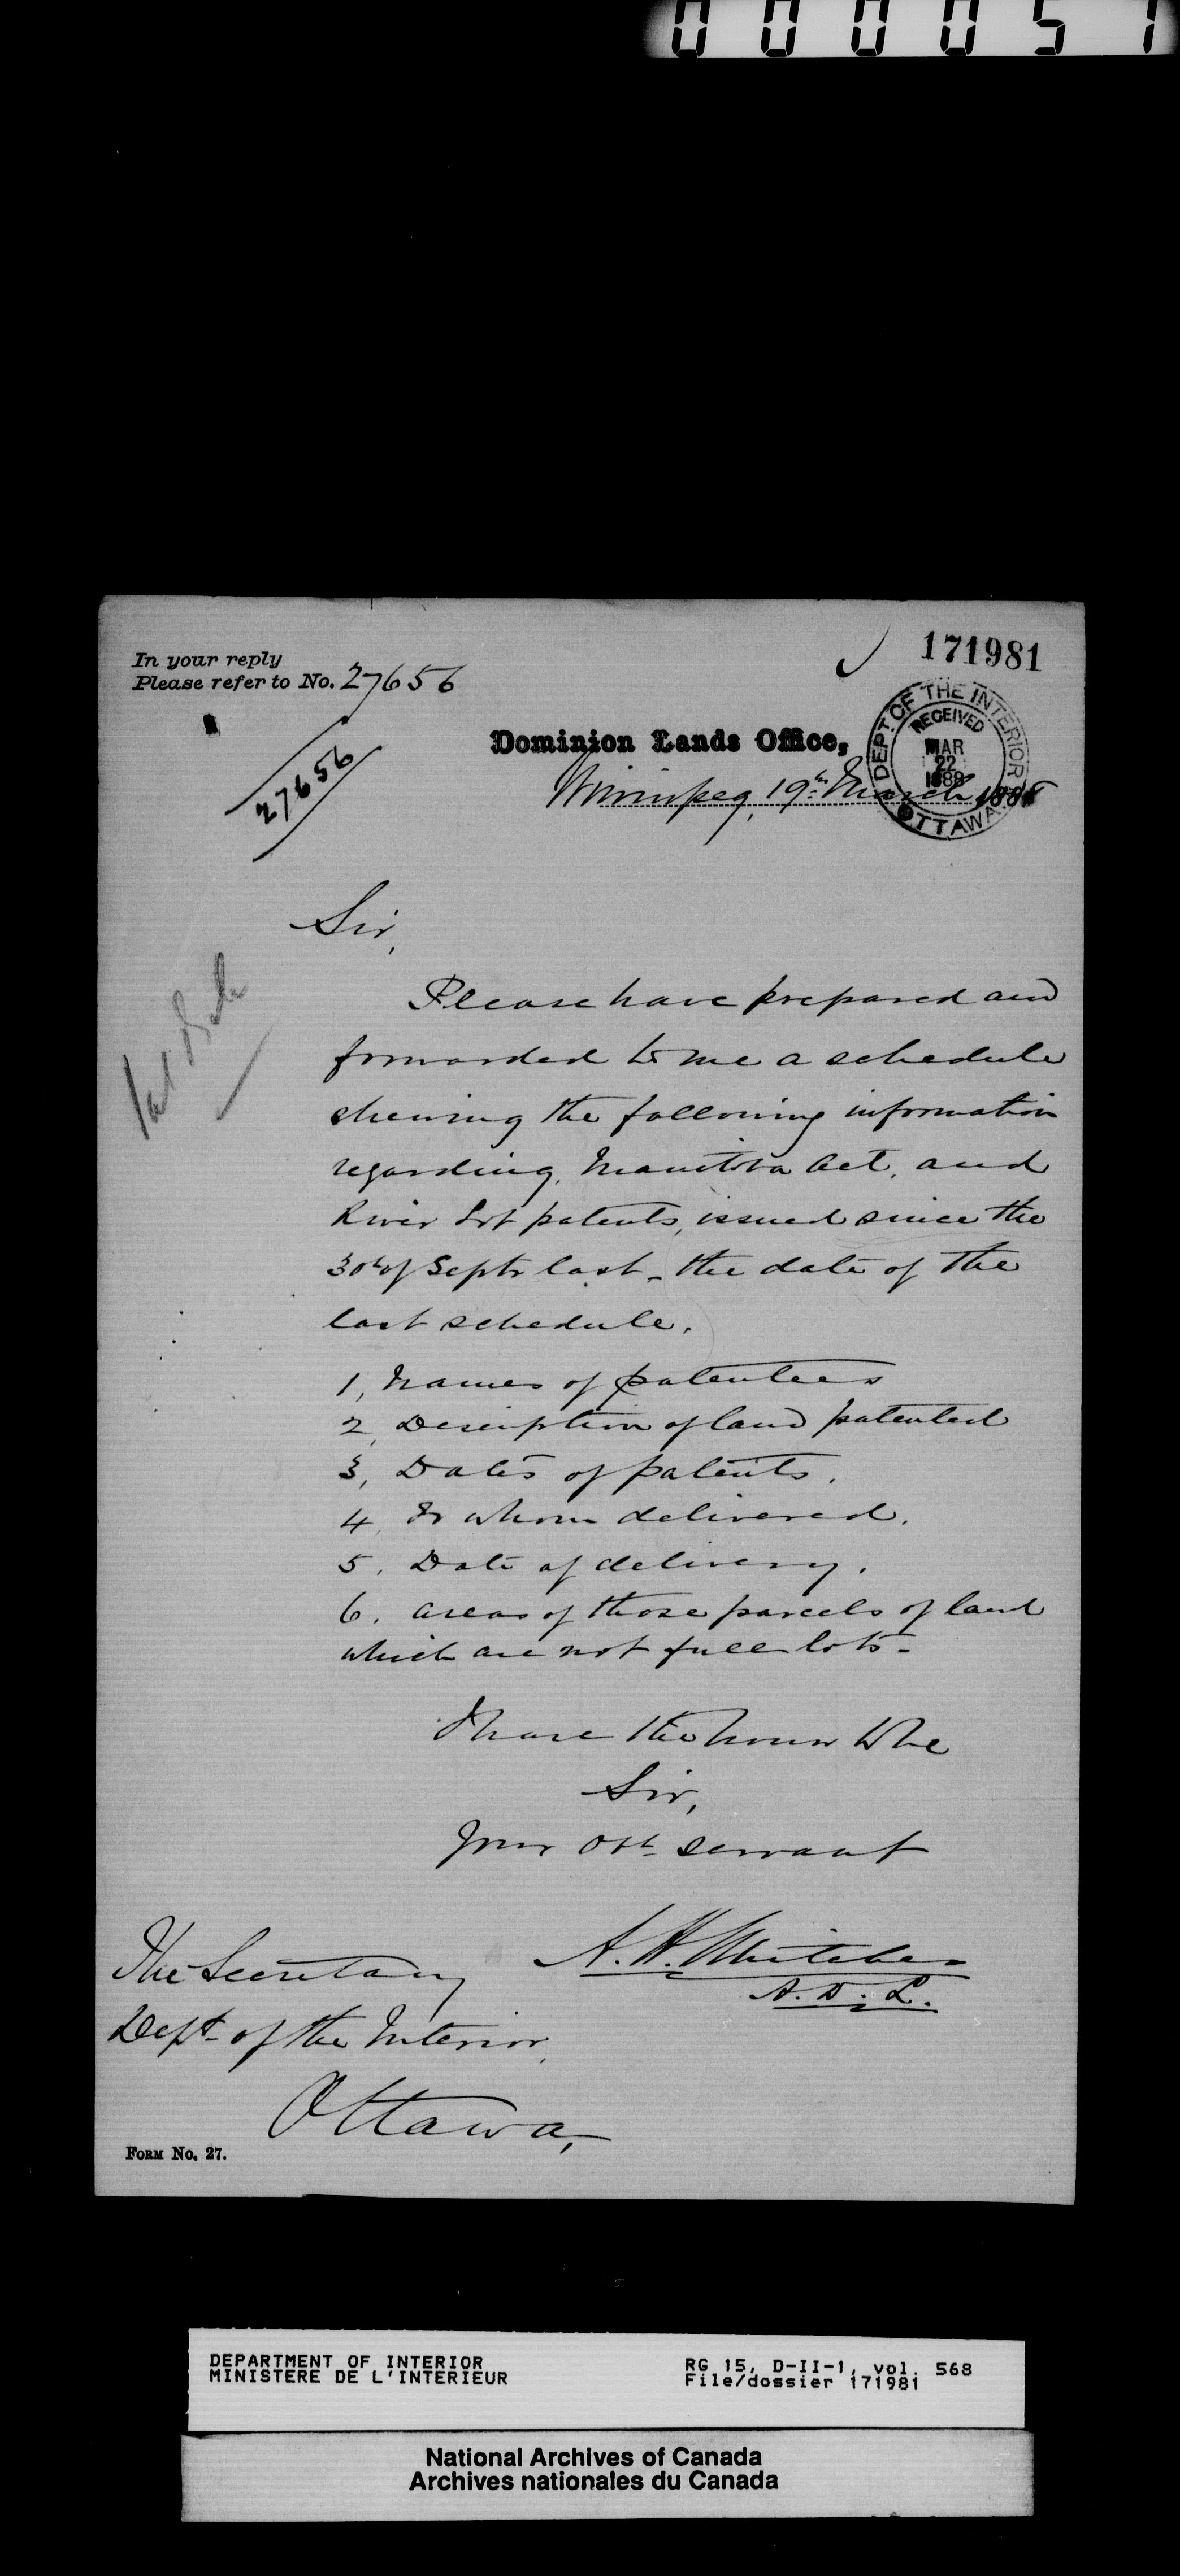 000057
In your reply
Please refer to No. 27656
171981
27656
Dominion Lands Office,
DEPT. OF THE INTERIOR
RECEIVED
MAR
22
1888
OTTAWA
Winnipeg, 19th March 1888
Sir,
Please have prepared and
forwarded to me a schedule
shewing the following information
regarding, Manitoba Act, and
River Lot patents, issued since the
30th of Septr last - the date of the
last schedule.
1, Names of patentees
2, Description of land patented
3, Dates of patents.
4, To whom delivered.
5, Date of delivery.
6. areas of those parcels of land
which are not full lots -
I have the honor to be
Sir,
Your Obt servant
A. H. Whitcher
A. D. L.
The Secretary
Dept. of the Interior,
Ottawa,
FORM No. 27.
DEPARTMENT OF INTERIOR
MINISTERE DE L'INTERIEUR
RG 15, D-II-1, vol. 568
File/dossier 171981
National Archives of Canada
Archives nationales du Canada